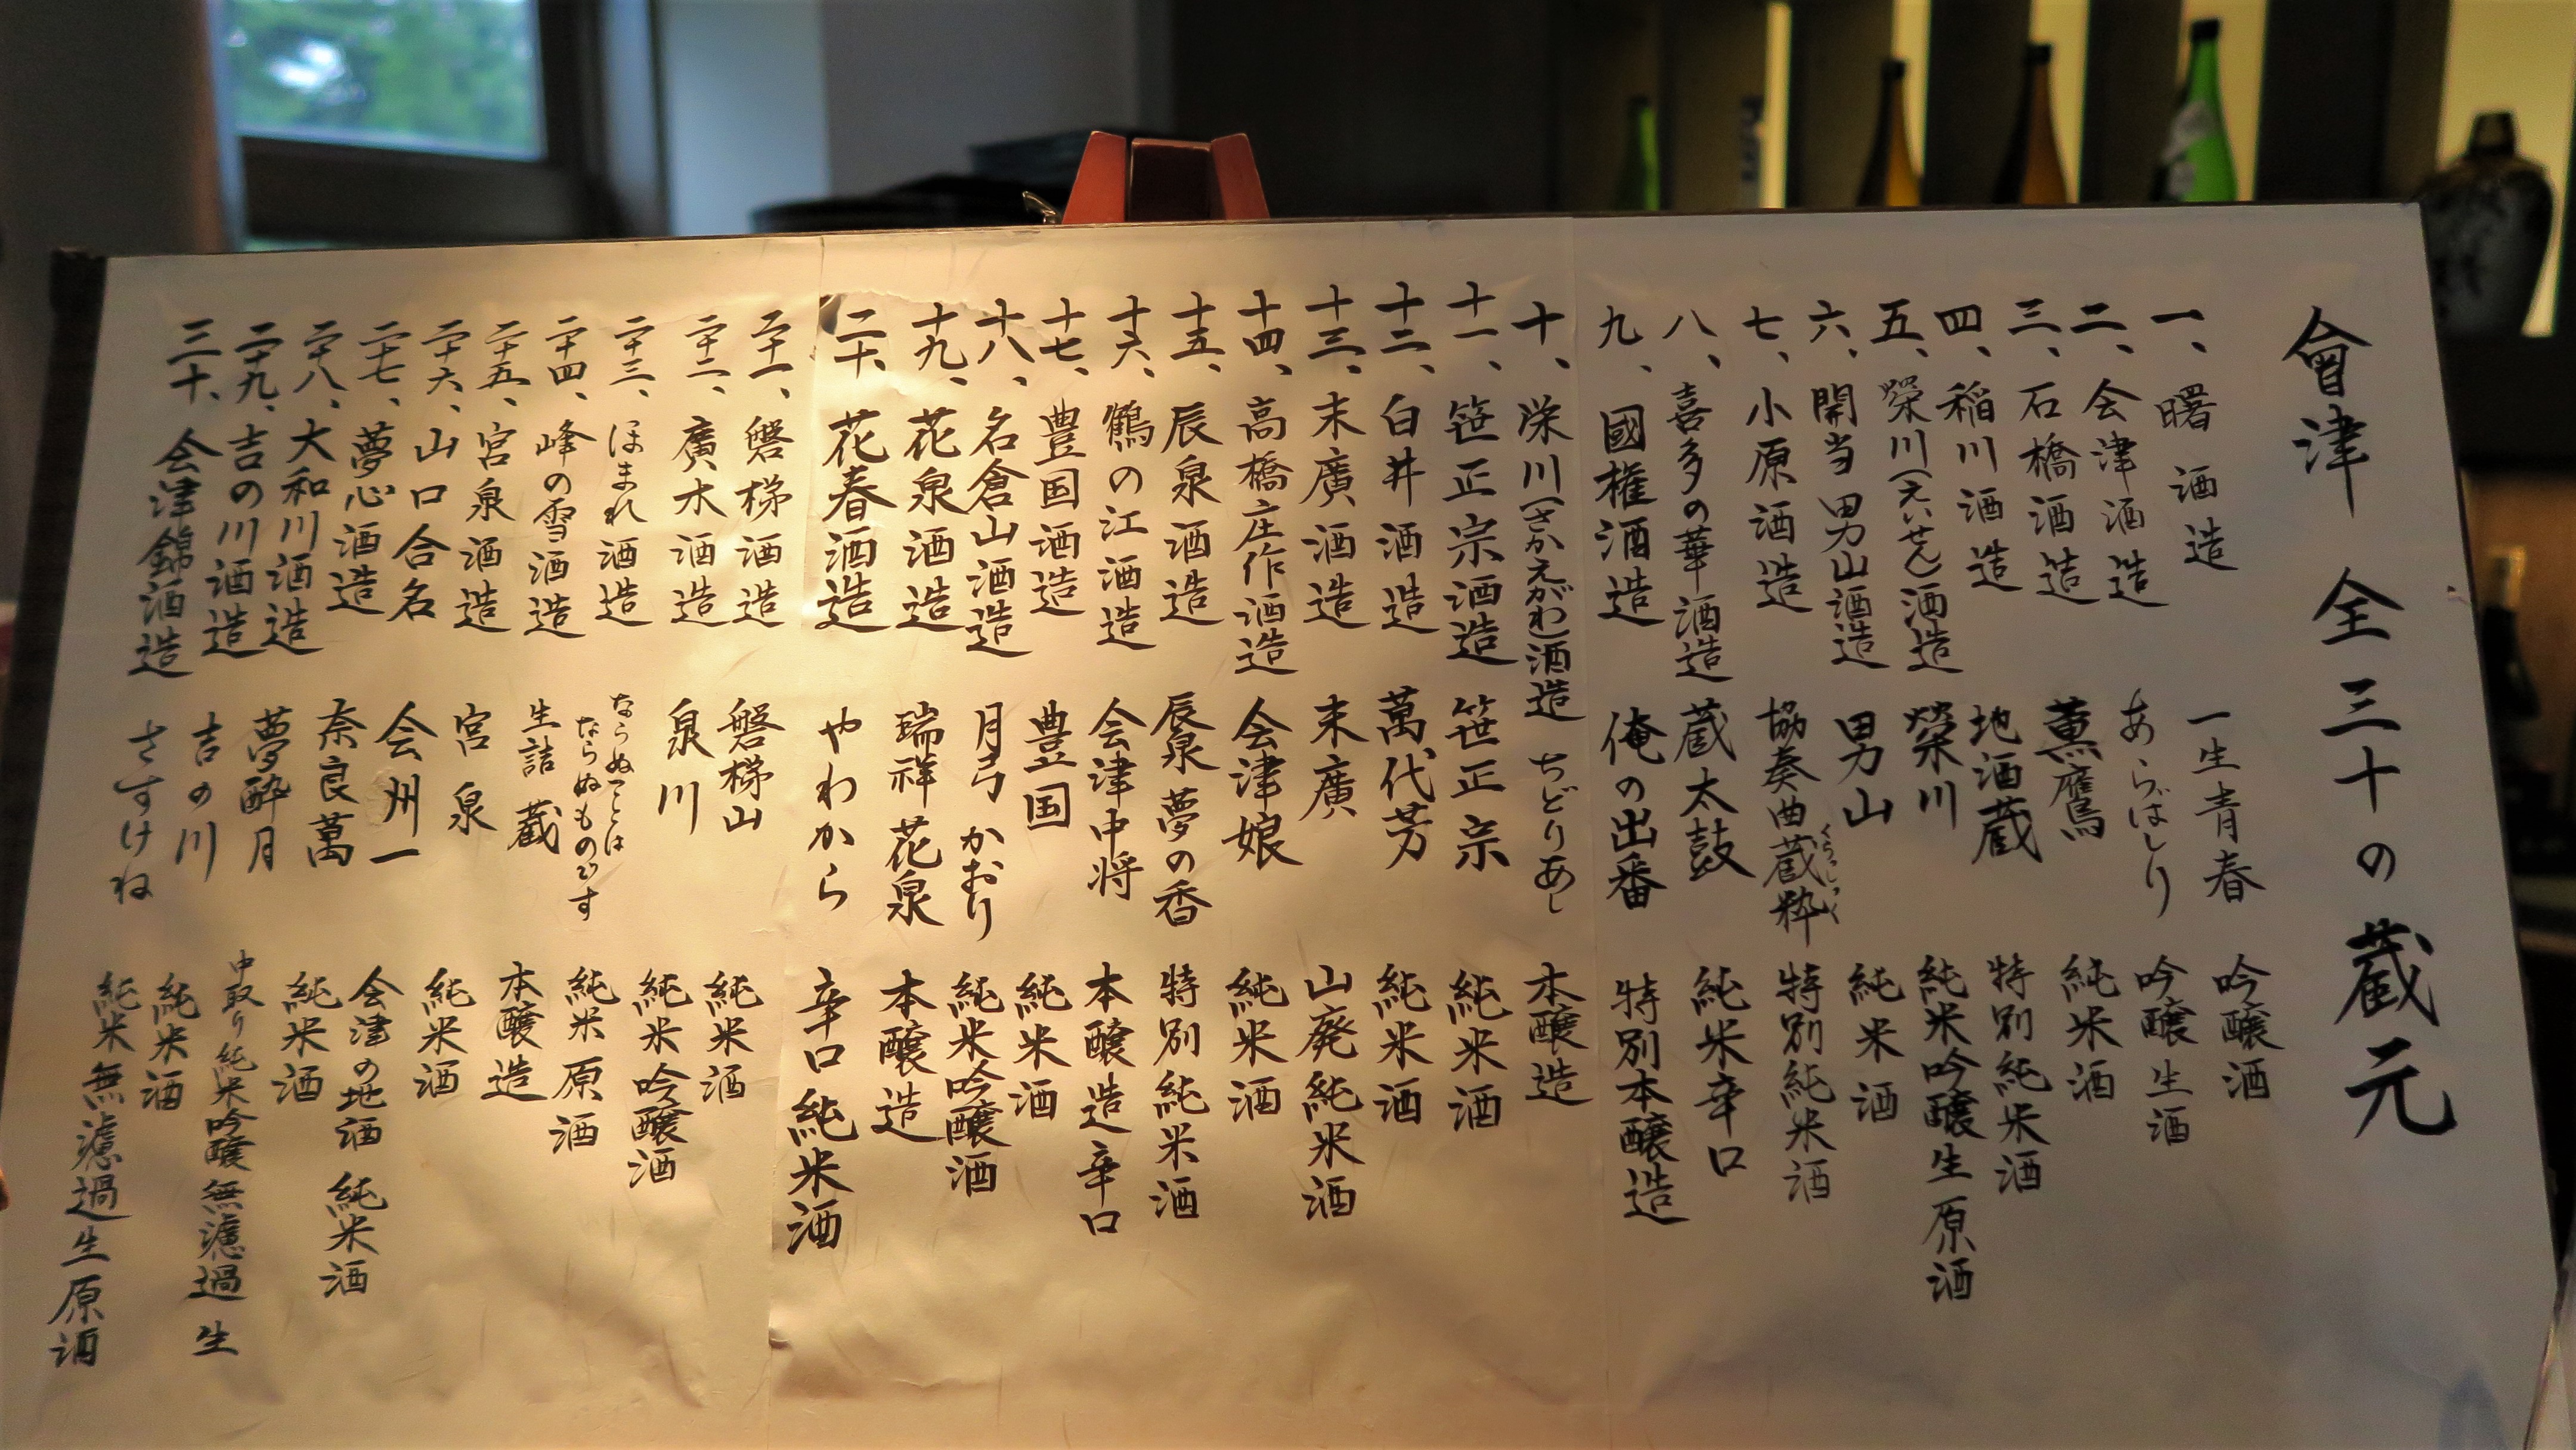 會津 全三十の蔵元
一、曙酒造 一生青春 吟醸酒
二、会津酒造 あらばしり 吟醸生酒
三、石橋酒造 薫鷹 純米酒
四、稲川酒造 地酒蔵 特別純米酒
五、榮川(えいせん)酒造 榮川 純米吟醸生原酒
六、開当男山酒造 男山 純米酒
七、小原酒造 協奏曲蔵粋 くらしっく 特別純米酒
八、喜多の華酒造 蔵太鼓 純米辛口
九、國権酒造 俺の出番 特別本醸造
十、栄川(さかえがわ)酒造 ちどりあし 本醸造
十一、笹正宗酒造 笹正宗 純米酒
十二、白井酒造 萬代芳 純米酒
十三、末廣酒造 末廣 山廃純米酒
十四、高橋庄作酒造 会津娘 純米酒
十五、辰泉酒造 辰泉 夢の香 特別純米酒
十六、鶴の江酒造 会津中将 本醸造辛口
十七、豊国酒造 豊国 純米酒
十八、名倉山酒造 月弓 かおり 純米吟醸酒
十九、花泉酒造 瑞祥 花泉 本醸造
二十、花春酒造 やわから 辛口 純米酒
二十一、磐梯酒造 磐梯山 純米酒
二十二、廣木酒造 泉川 純米吟醸酒
二十三、ほまれ酒造 ならぬことはならぬものです 純米原酒
二十四、峰の雪酒造 生詰 蔵 本醸造
二十五、宮泉酒造 宮泉 純米酒
二十六、山口合名 会州一 会津の地酒 純米酒
二十七、夢心酒造 奈良萬 純米酒
二十八、大和川酒造 夢酔月 中取り純米吟醸無濾過生
二十九、吉の川酒造 吉の川 純米酒
三十、会津錦酒造 さすけね 純米無濾過生原酒